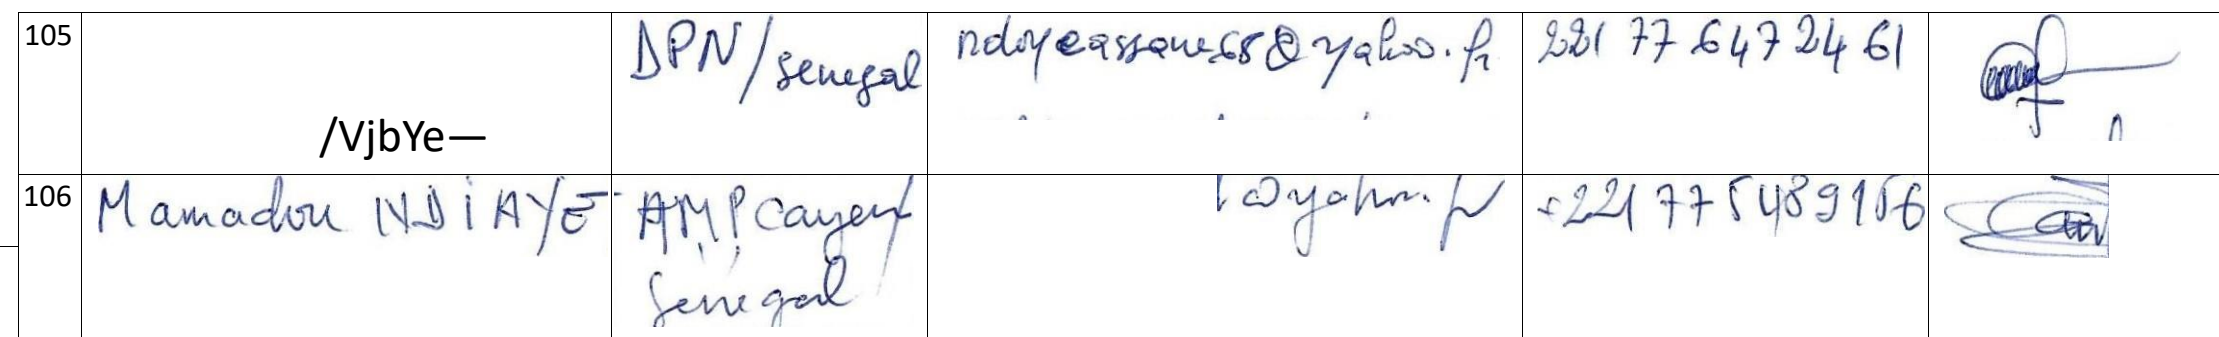 105 /VjbYe— DPN/senegal ndoyeassane68@yahoo.fr 221 77 647 24 61
106 Mamadou NDIAYE AMP Cayar/ @yahoo.fr +221 77 548 91 56
Senegal